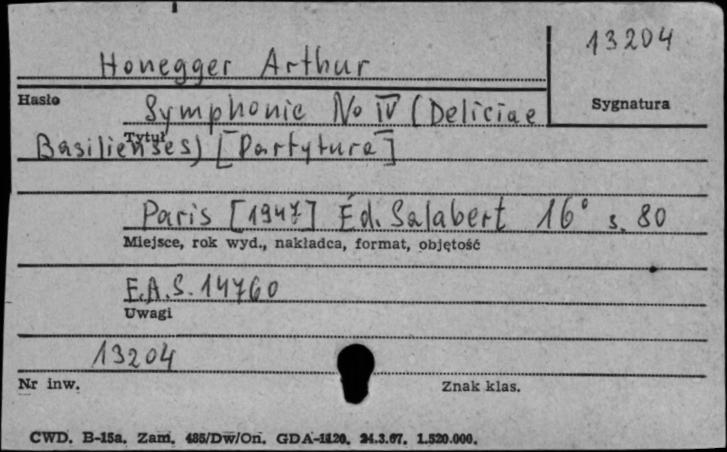 Honegger Arthur
13204
Hasło
Sygnatura
Symphonie No IV (Deliciae
Tytuł
Basilienses) [Partytura]
Paris [1947] Éd. Salabert 16° s. 80
Miejsce, rok wyd., nakładca, format, objętość
E.A.S. 14760
Uwagi
13204
Nr inw.
Znak klas.
CWD. B-15a. Zam. 485/Dw/On. GDA-1120. 24.3.67. 1.520.000.